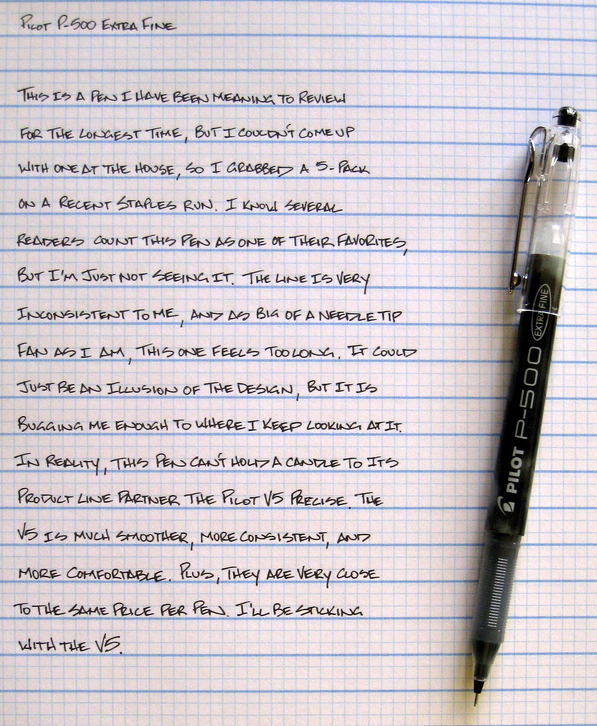 PILOT P-500 EXTRA FINE
THIS IS A PEN I HAVE BEEN MEANING TO REVIEW
FOR THE LONGEST TIME, BUT I COULDN'T COME UP
WITH ONE AT THE HOUSE, SO I GRABBED A 5-PACK
ON A RECENT STAPLES RUN. I KNOW SEVERAL
READERS COUNT THIS PEN AS ONE OF THEIR FAVORITES,
BUT I'M JUST NOT SEEING IT. THE LINE IS VERY
INCONSISTENT TO ME, AND AS BIG OF A NEEDLE TIP
FAN AS I AM, THIS ONE FEELS TOO LONG. IT COULD
JUST BE AN ILLUSION OF THE DESIGN, BUT IT IS
BUGGING ME ENOUGH TO WHERE I KEEP LOOKING AT IT.
IN REALITY, THIS PEN CAN'T HOLD A CANDLE TO ITS
PRODUCT LINE PARTNER THE PILOT V5 PRECISE. THE
V5 IS MUCH SMOOTHER, MORE CONSISTENT, AND
MORE COMFORTABLE. PLUS, THEY ARE VERY CLOSE
TO THE SAME PRICE PER PEN. I'LL BE STICKING
WITH THE V5.
PILOT P-500 EXTRA FINE